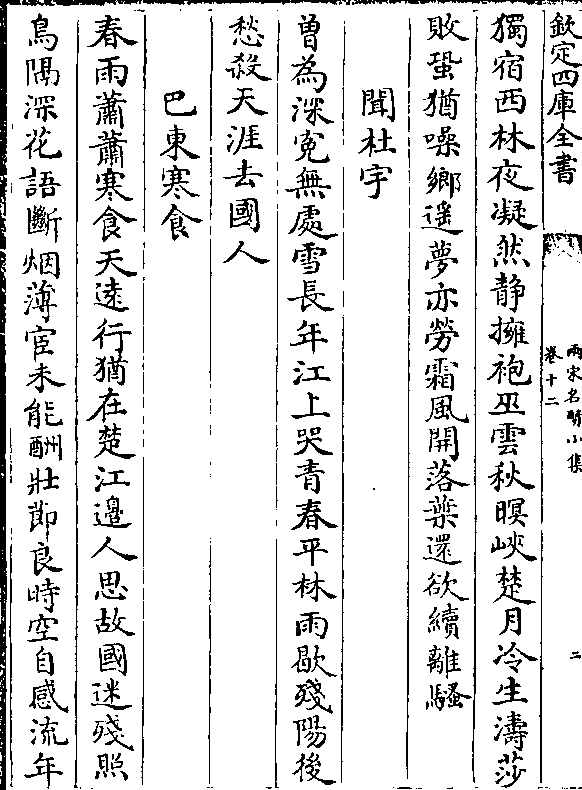 欽定四庫全書
兩宋名賢小集
卷十二
二
獨宿西林夜凝然靜擁袍巫雲秋暝峽楚月冷生濤莎
敗蛩猶噪鄉遥夢亦勞霜風開落葉還欲續離騷
聞杜宇
曽為深寃無處雪長年江上哭青春平林雨歇殘陽後
愁殺天涯去國人
巴東寒食
春雨蕭蕭寒食天逺行猶在楚江邊人思故國迷殘照
鳥隔深花語斷烟薄宦未能酬壯節良時空自感流年